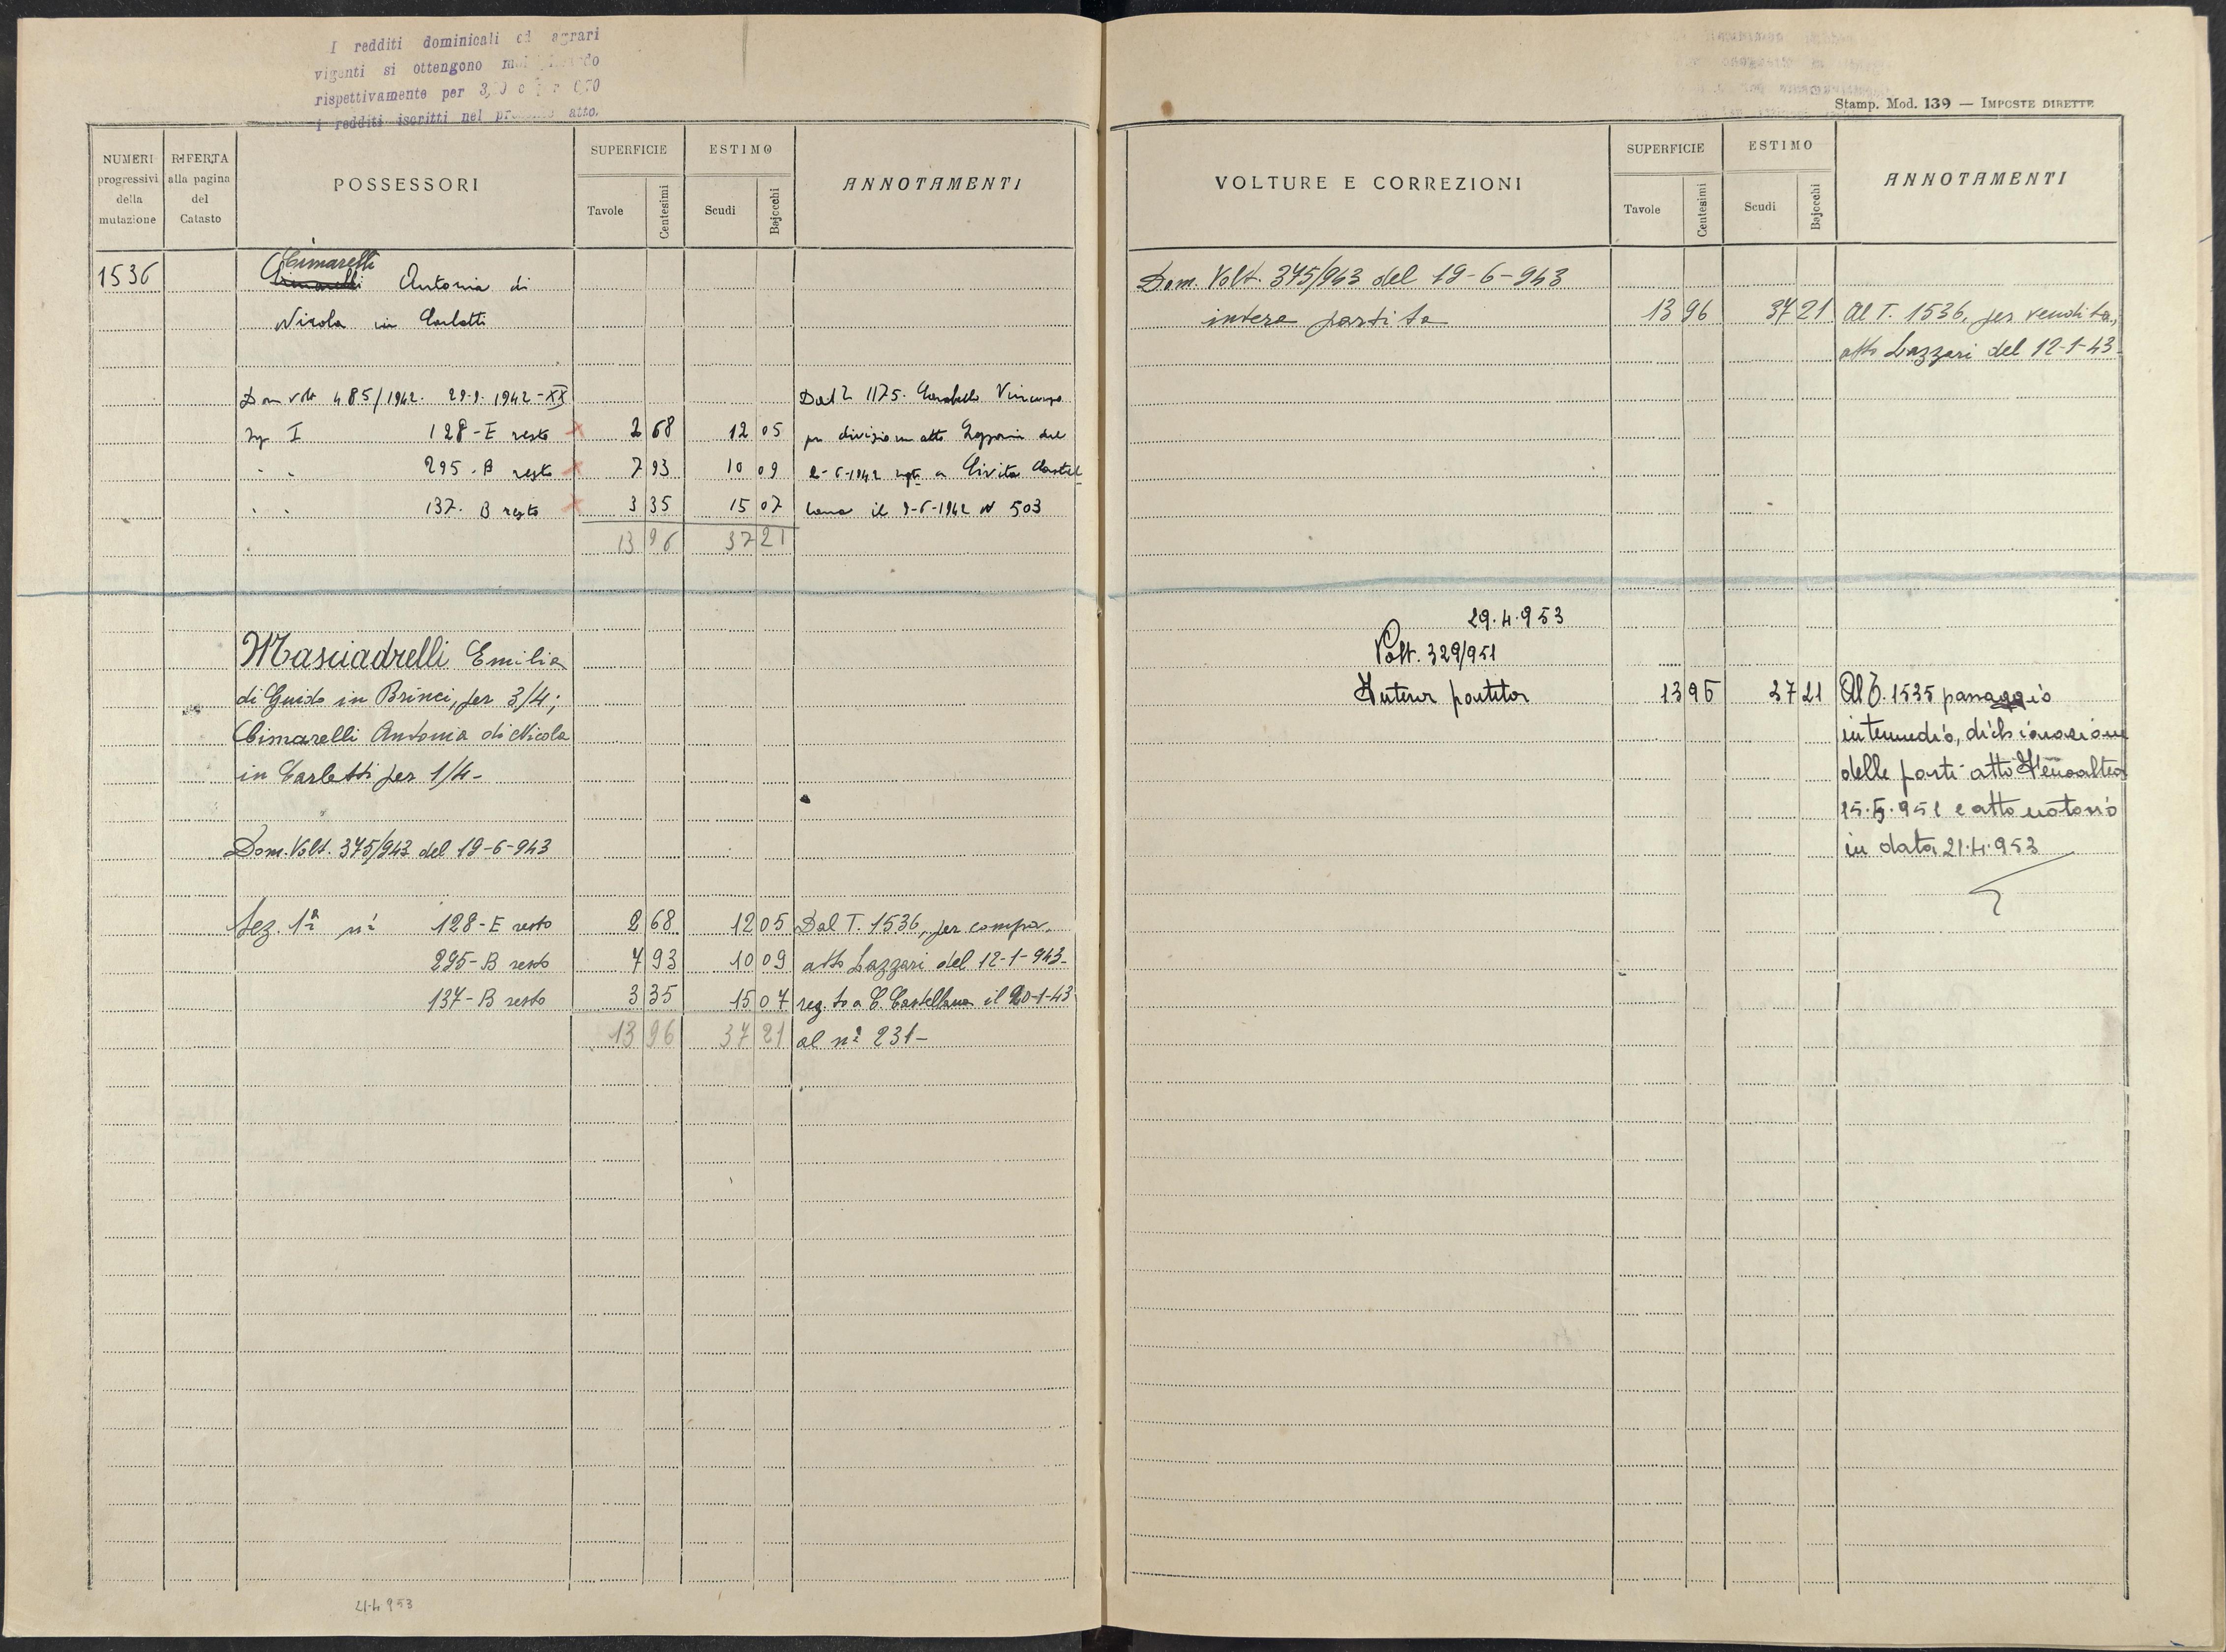 I redditi dominicali ed agrari
vigenti si ottengono
rispettivamente per
i redditi iscritti nel atto.
NUMERI progressivi della mutazione
RIFERTA alla pagina del Catasto
POSSESSORI
SUPERFICIE
Tavole
Centesimi
ESTIMO
Scudi
Bajocchi
ANNOTAMENTI
Cimarelli
1536 Antonia di
Nicola in Carletti
Dom volt 485/1942. 29.9.1942-XX Dal T 1175.
I 128-E resto 2 68 12 05 per divisione atto del
" " 295-B resto 7 93 10 09 2-6-1942 a Civita Castel
" " 137-B resto 3 35 15 07 lana il 9-6-1942 N 503
13 96 37 21
Masciadrelli Emilia
di Guido in Brinci, per 3/4;
Cimarelli Antonia di Nicola
in Carletti per 1/4-
Dom. Volt. 375/943 del 19-6-943
Sez. 1ª nⁱ 128-E resto 2 68 12 05 Dal T. 1536, per compra,
295-B resto 7 93 10 09 atto Lazzari del 12-1-943-
137-B resto 3 35 15 07 reg.to a C. Castellana il 20-1-43
13 96 37 21 al nº 231-
21-4 953
Stamp. Mod. 139 — IMPOSTE DIRETTE
VOLTURE E CORREZIONI
SUPERFICIE
Tavole
Centesimi
ESTIMO
Scudi
Bajocchi
ANNOTAMENTI
Dom. Volt. 375/943 del 19-6-943
intera partita 13 96 37 21 Al T. 1536, per vendita,
atto Lazzari del 12-1-43-
29.4.953
Volt. 329/951
Intera partita 13 96 37 21 Al T. 1535 passaggio
intermedio, dichiarazione
delle parti atto
15.5.951 e atto notorio
in data 21.4.953